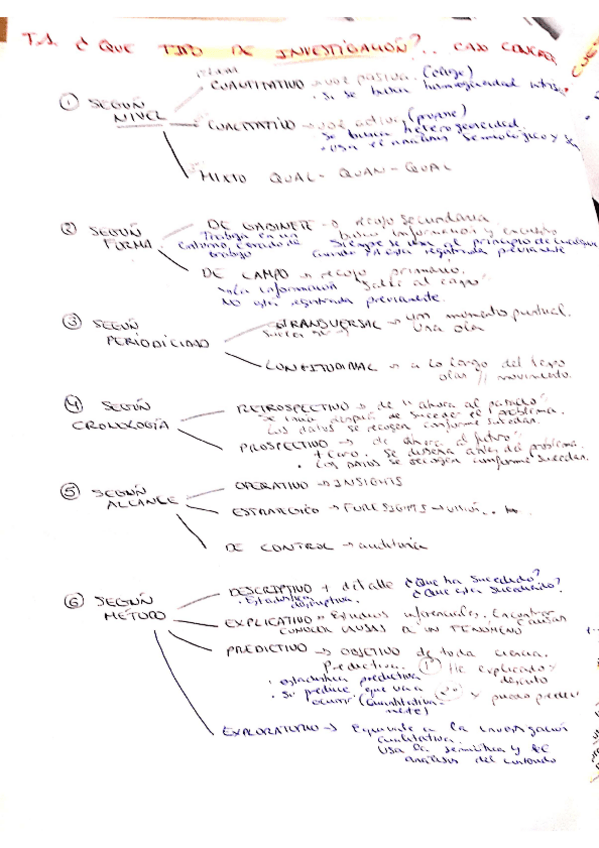 T.1. ¿QUE TIPO DE INVESTIGACIÓN?.. CASO
① SEGÚN NIVEL
CUANTITATIVO → voz pasiva. (elige)
• Si se busca homogeneidad
CUALITATIVO → voz activa (propone)
Se busca heterogeneidad.
• Usa el análisis semiológico y
MIXTO QUAL - QUAN - QUAL
② SEGÚN FORMA
DE GABINETE → recojo secundaria
Trabaja en un entorno cerrado de trabajo
busco información y encuentro
Siempre se usa al principio de
cuando ya está registrada previamente
DE CAMPO → recojo primario.
información Salir al campo
NO está registrada previamente.
③ SEGÚN PERIODICIDAD
TRANSVERSAL → un momento puntual.
una ola
LONGITUDINAL → a lo largo del tiempo
olas // movimiento.
④ SEGÚN CRONOLOGÍA
RETROSPECTIVO → de "ahora al pasado"
Se inicia después de suceder el problema.
Los datos se recogen conforme sucedan.
PROSPECTIVO → de ahora al futuro
+ caro. Se diseña antes del problema.
• Los DATOS se recogen conforme sucedan.
⑤ SEGÚN ALCANCE
OPERATIVO → INSIGHTS
ESTRATEGICO → FORESIGHTS →
DE CONTROL → auditoría
⑥ SEGÚN METODO
DESCRIPTIVO + detalle ¿Que ha sucedido?
• Estadística descriptiva. ¿Que esta sucediendo?
EXPLICATIVO → Estudios inferenciales. Encontrar causas
CONOCER CAUSAS DE UN FENOMENO
PREDICTIVO → OBJETIVO de toda ciencia.
Predictiva. 1º He explicado y
• estadística predictiva
• Se predice que va a 2º y puedo predecir
ocurrir (cuantitativamente)
EXPLORATORIO → Equivale a la investigación
cualitativa.
Usa la semiótica y el
análisis del contenido